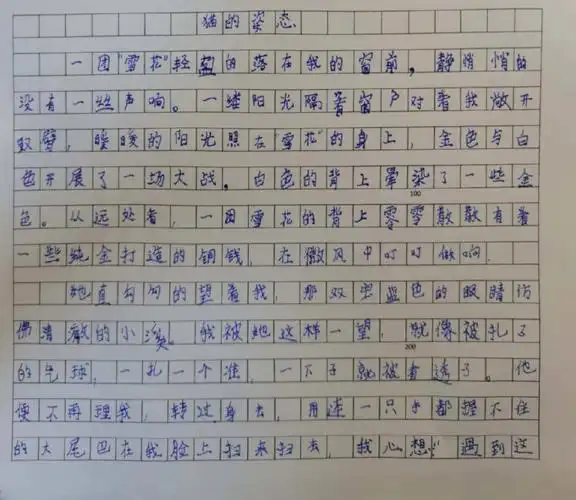 猫的姿态
一团"雪花"轻盈的落在我的窗前，静悄悄的
没有一些声响。一缕阳光隔着窗户对着我敞开
双臂，暖暖的阳光照在"雪花"的身上，金色与白
色开展了一场大战。白色的背上晕染了一些金
100
色。从远处看，一团雪花的背上零零散散有着
一些纯金打造的铜钱，在微风中叮叮做响.
她直勾勾的望着我，那双宝蓝色的眼睛仿
佛清澈的小溪。我被她这样一望，就像被扎了
200
的气球，一扎一个准，一下子就被看透了。他
便不再理我，转过身去，用连一只手都握不住
的大尾巴在我脸上扫来扫去，我心想："遇到这